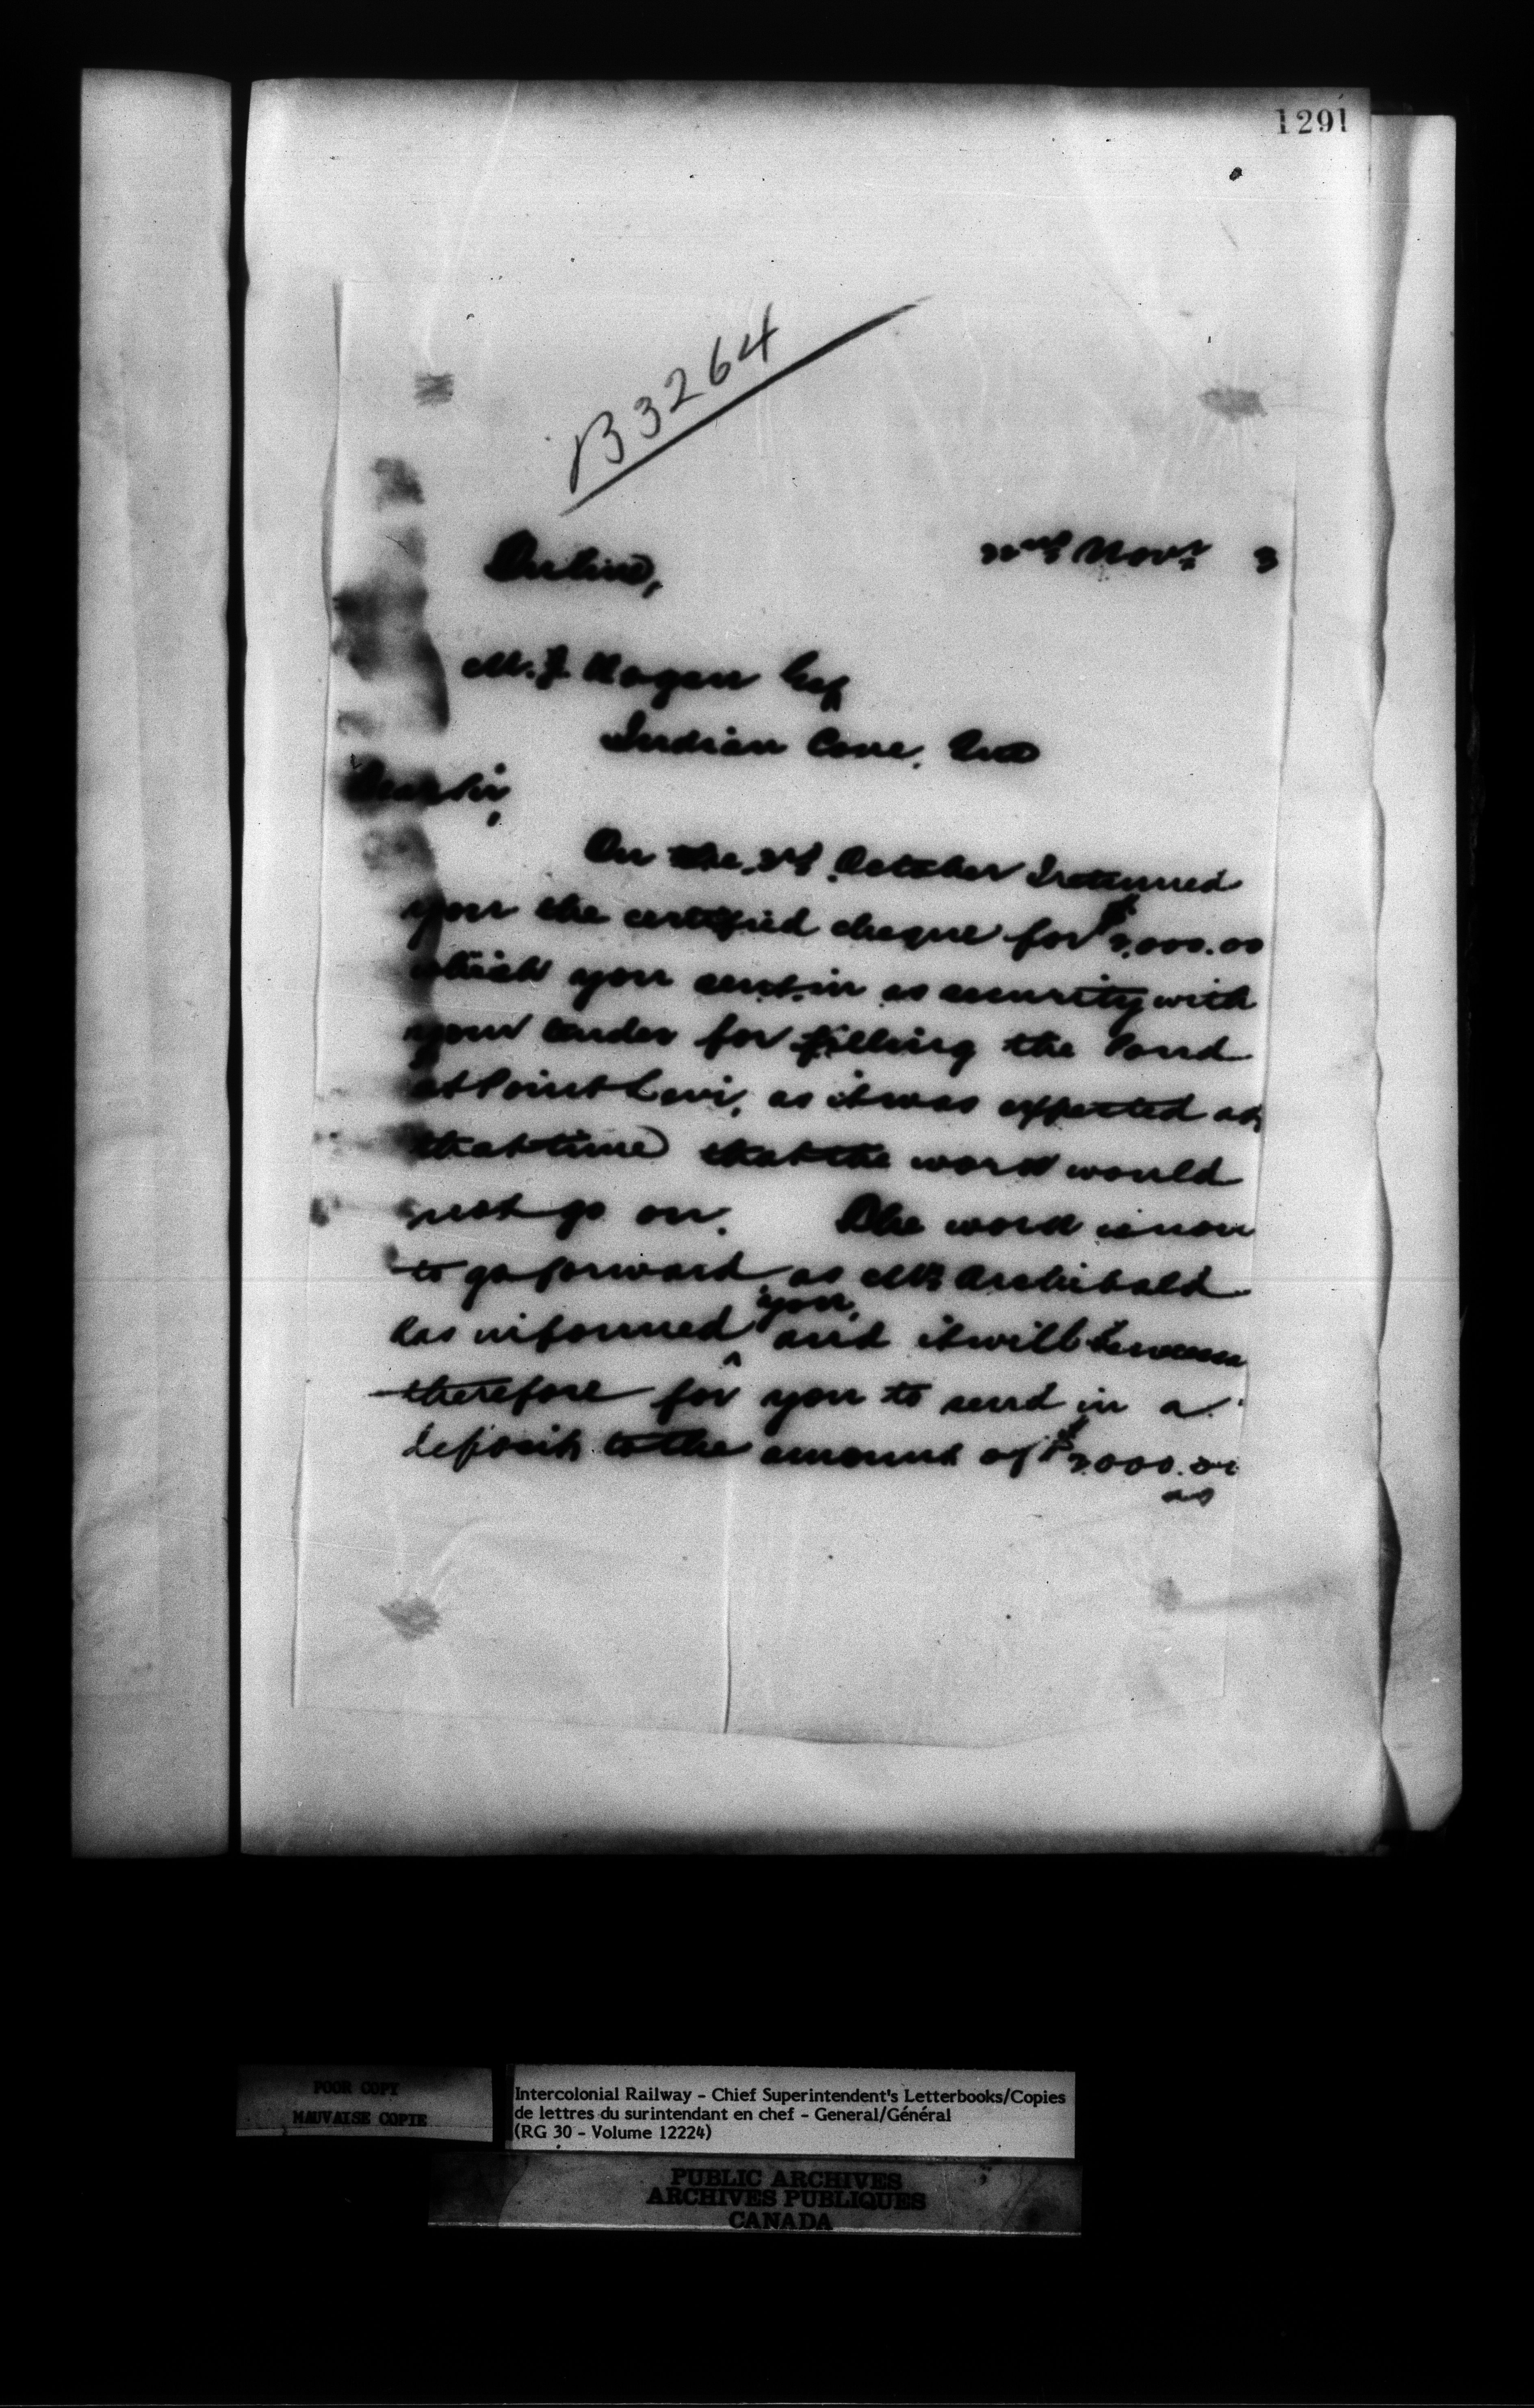 1291
B3264
22nd Novr 3
M. J. Hogan Esq
Indian Cove,
Dear Sir,
On the October I returned
you the certified cheque for $2,000.00
which you sent in as security with
your tender for filling the Pond
at Point Levi, as it was expected at
that time that the work would
not go on. The work is now
to go forward, as Mr Archibald
has informed you, and it will be
therefore for you to send in a
deposit to the amount of $2000.
as
POOR COPY
MAUVAISE COPIE
Intercolonial Railway - Chief Superintendent's Letterbooks/Copies
de lettres du surintendant en chef - General/Général
(RG 30 - Volume 12224)
PUBLIC ARCHIVES
ARCHIVES PUBLIQUES
CANADA